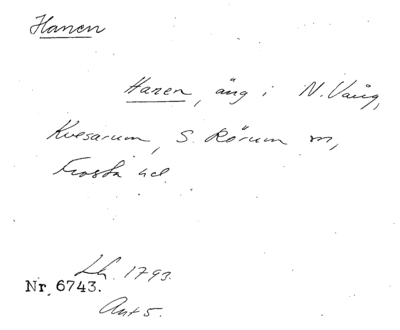 Hanen
Hanen, äng i N. Vång,
Kvesarum, S. Rörum sn,
Frosta hd.
Lh. 1793.
Nr 6743.
Akt 5.